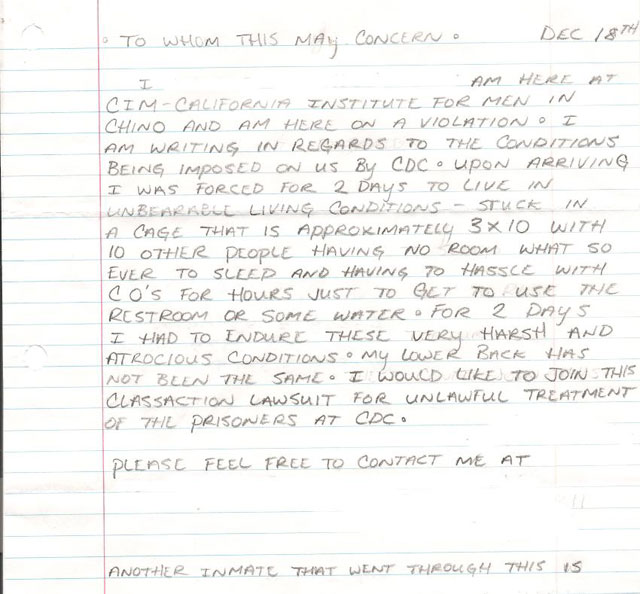 • TO WHOM THIS MAY CONCERN • DEC 18TH
I AM HERE AT
CIM-CALIFORNIA INSTITUTE FOR MEN IN
CHINO AND AM HERE ON A VIOLATION. I
AM WRITING IN REGARDS TO THE CONDITIONS
BEING IMPOSED ON US BY CDC. UPON ARRIVING
I WAS FORCED FOR 2 DAYS TO LIVE IN
UNBEARABLE LIVING CONDITIONS - STUCK IN
A CAGE THAT IS APPROXIMATELY 3X10 WITH
10 OTHER PEOPLE HAVING NO ROOM WHAT SO
EVER TO SLEEP AND HAVING TO HASSLE WITH
C O'S FOR HOURS JUST TO GET TO USE THE
RESTROOM OR SOME WATER. FOR 2 DAYS
I HAD TO ENDURE THESE VERY HARSH AND
ATROCIOUS CONDITIONS. MY LOWER BACK HAS
NOT BEEN THE SAME. I WOULD LIKE TO JOIN THIS
CLASSACTION LAWSUIT FOR UNLAWFUL TREATMENT
OF THE PRISONERS AT CDC.
PLEASE FEEL FREE TO CONTACT ME AT
ANOTHER INMATE THAT WENT THROUGH THIS IS